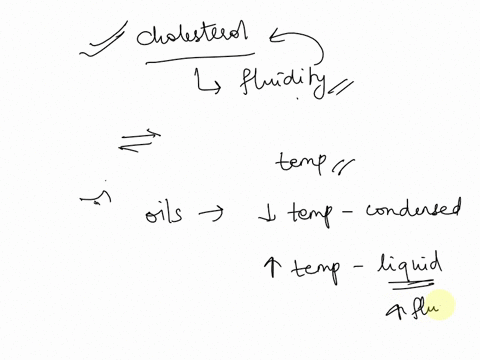 cholesterol
↳ fluidity
⇌
temp
oils → ↓ temp - condensed
↑ temp - liquid
↑ flu